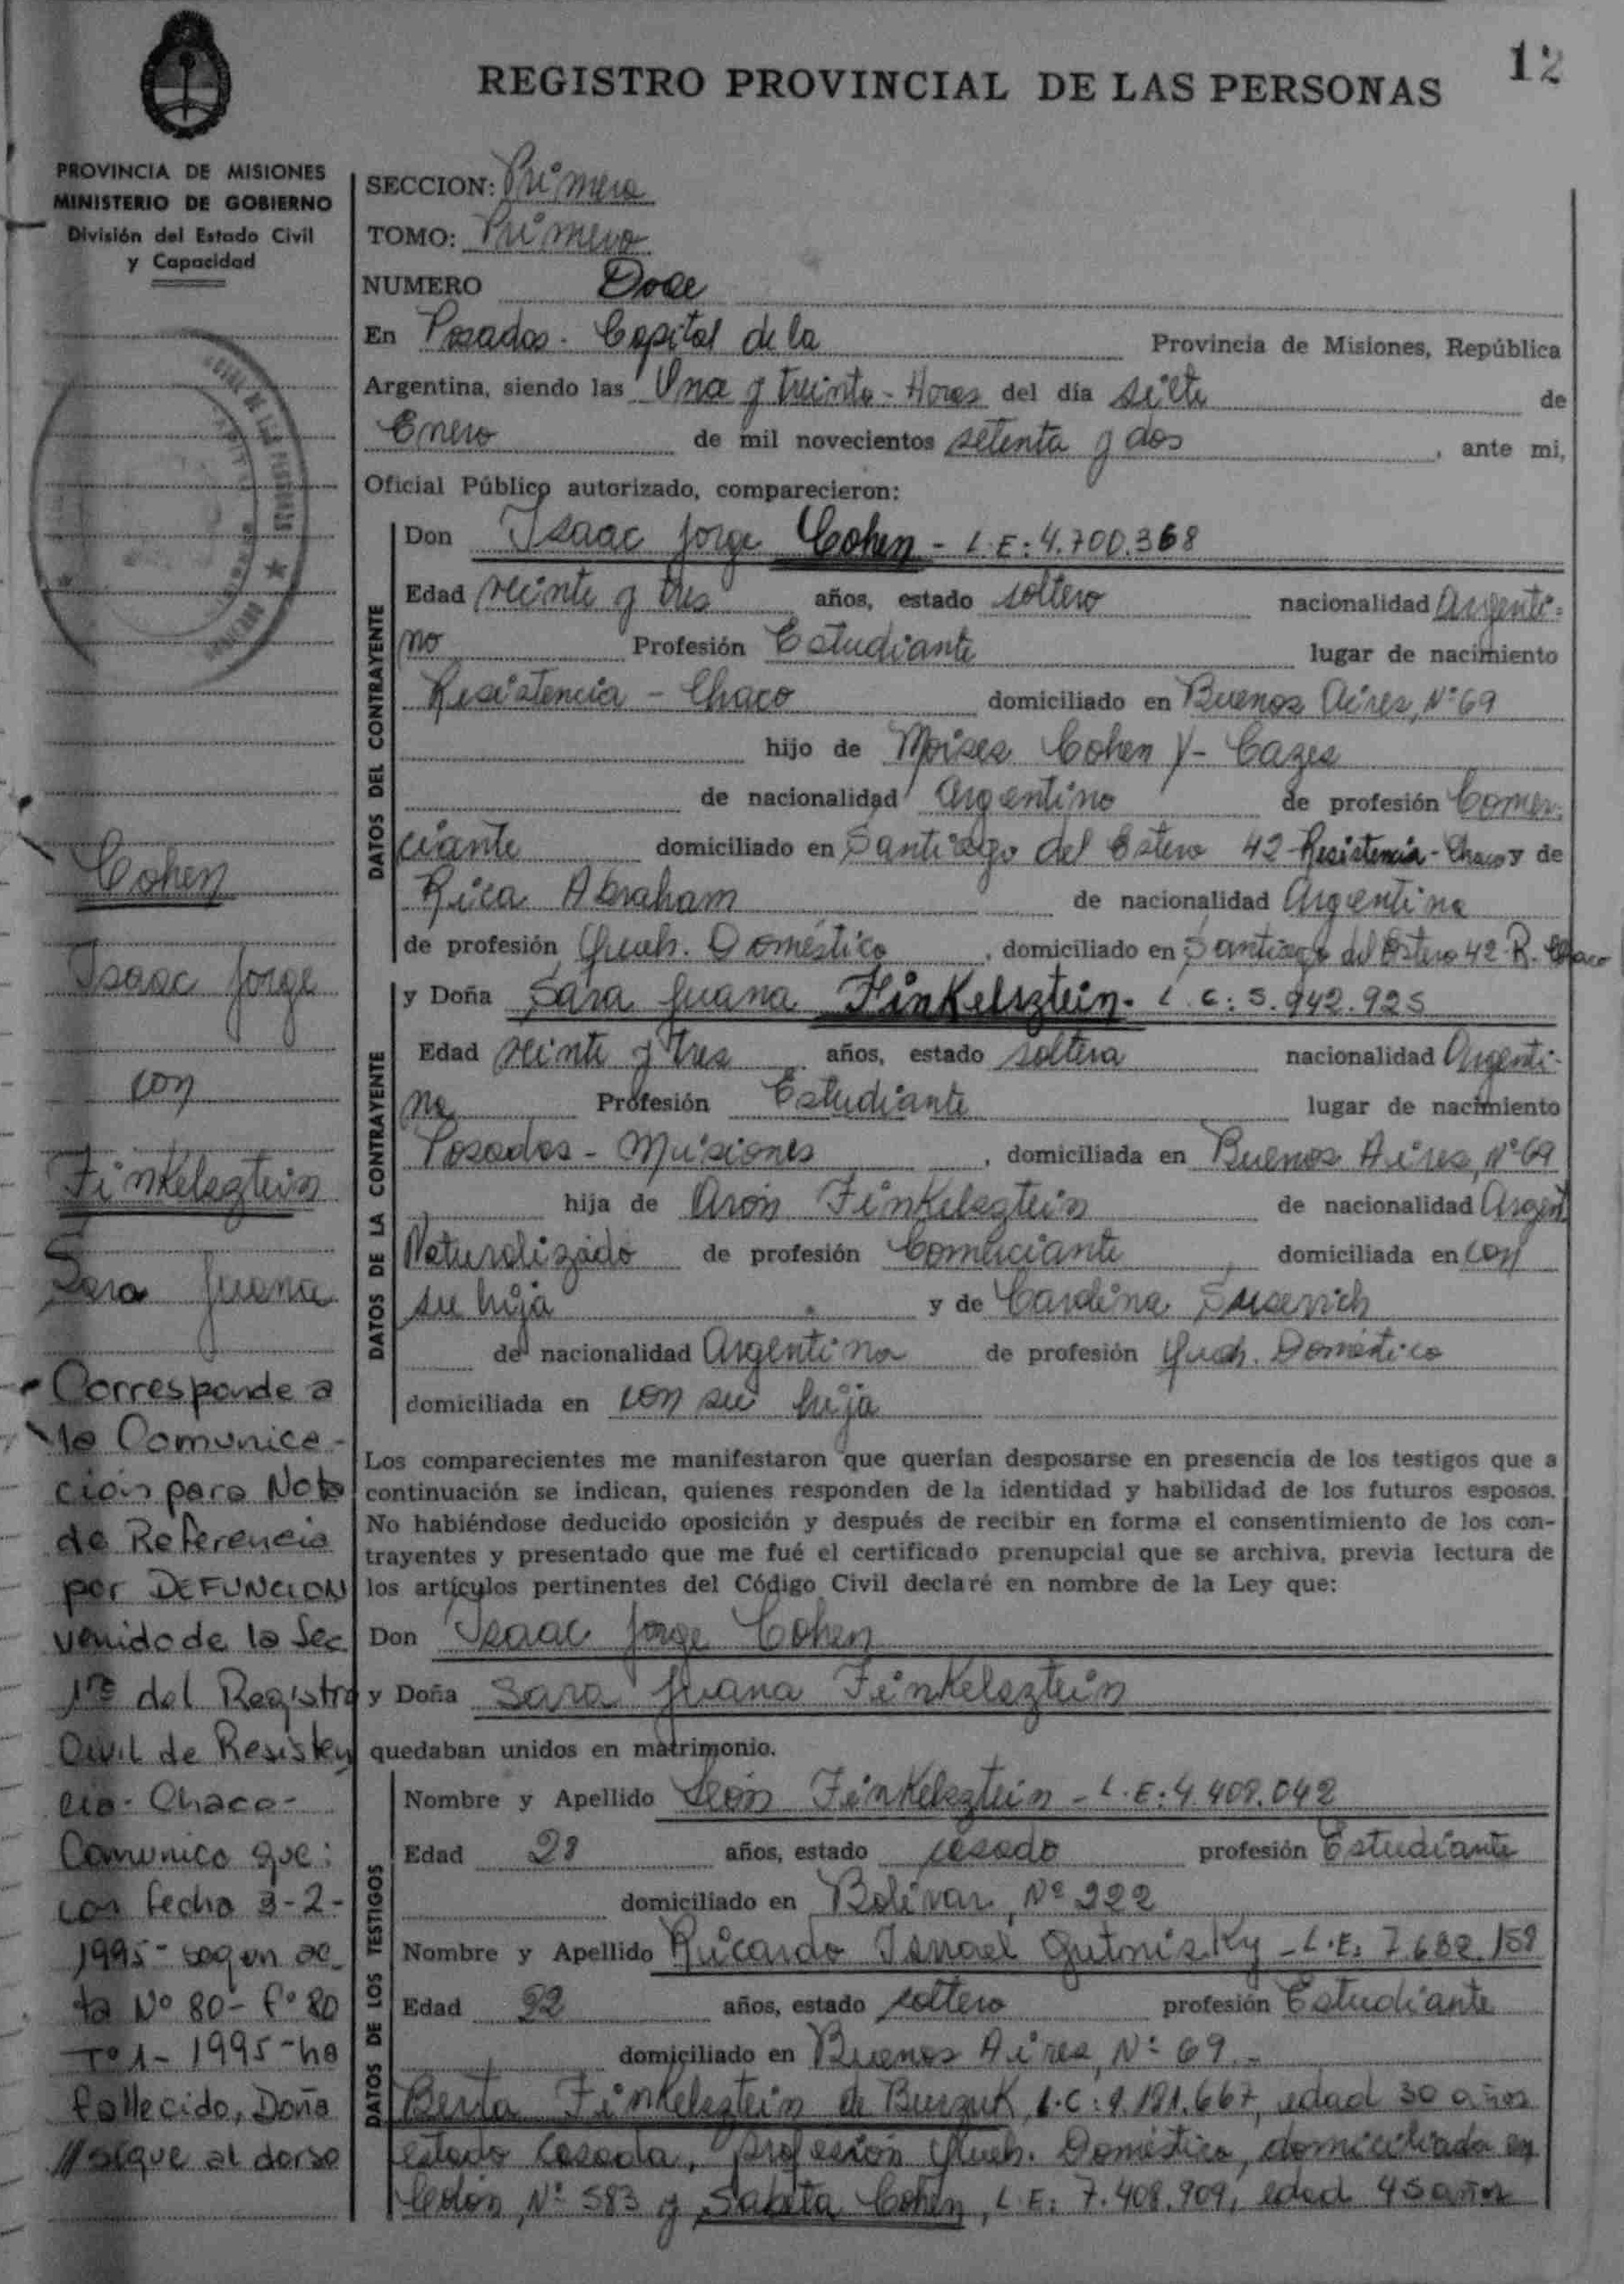 12
REGISTRO PROVINCIAL DE LAS PERSONAS
PROVINCIA DE MISIONES
MINISTERIO DE GOBIERNO
División del Estado Civil
y Capacidad
SECCION: Primera
TOMO: Primero
NUMERO Doce
En Posadas - Capital de la Provincia de Misiones, República
Argentina, siendo las Una y treinta - Horas del día siete de
Enero de mil novecientos setenta y dos, ante mi,
Oficial Público autorizado, comparecieron:
DATOS DEL CONTRAYENTE
Don Isaac Jorge Cohen - L.E: 4.700.368
Edad veinte y tres años, estado soltero nacionalidad Argenti-
no Profesión Estudiante lugar de nacimiento
Resistencia - Chaco domiciliado en Buenos Aires, Nº 69
hijo de Moises Cohen y - Cazes
de nacionalidad Argentino de profesión Comer-
ciante domiciliado en Santiago del Estero 42 Resistencia - Chaco y de
Rica Abraham de nacionalidad Argentina
de profesión Queh. Doméstico, domiciliado en Santiago del Estero 42-R. Chaco
DATOS DE LA CONTRAYENTE
y Doña Sara Juana Finkelsztein - L.C: 5.942.925
Edad veinte y tres años, estado soltera nacionalidad Argenti-
na Profesión Estudiante lugar de nacimiento
Posadas - Misiones, domiciliada en Buenos Aires, Nº 69
hija de Arón Finkelsztein de nacionalidad Argent.
Naturalizado de profesión Comerciante, domiciliada en con
su hija y de Carolina Susevich
de nacionalidad Argentina de profesión Queh. Doméstico
domiciliada en con su hija
Los comparecientes me manifestaron que querían desposarse en presencia de los testigos que a
continuación se indican, quienes responden de la identidad y habilidad de los futuros esposos.
No habiéndose deducido oposición y después de recibir en forma el consentimiento de los con-
trayentes y presentado que me fué el certificado prenupcial que se archiva, previa lectura de
los artículos pertinentes del Código Civil declaré en nombre de la Ley que:
Don Isaac Jorge Cohen
y Doña Sara Juana Finkelsztein
quedaban unidos en matrimonio.
DATOS DE LOS TESTIGOS
Nombre y Apellido León Finkelsztein - L.E: 4.408.042
Edad 28 años, estado casado profesión Estudiante
domiciliado en Bolívar, Nº 222
Nombre y Apellido Ricardo Israel Gutnisky - L.E: 7.682.158
Edad 22 años, estado soltero profesión Estudiante
domiciliado en Buenos Aires, Nº 69.-
Berta Finkelsztein de Burzuk, L.C: 9.191.667, edad 30 años
estado casada, profesión Queh. Doméstico, domiciliada en
Colón, Nº 583 y Sabeta Cohen, L.E: 7.408.909, edad 45 años
Cohen
Isaac Jorge
con
Finkelsztein
Sara Juana
Corresponde a
la Comunica-
ción para Nota
de Referencia
por DEFUNCION
venido de la Sec.
1ra del Registro
Civil de Resisten
cia - Chaco -
Comunico que:
con fecha 3-2-
1995 - segun ac-
ta Nº 80 - fº 80
Tº 1 - 1995 - ha
fallecido, Doña
// sigue al dorso